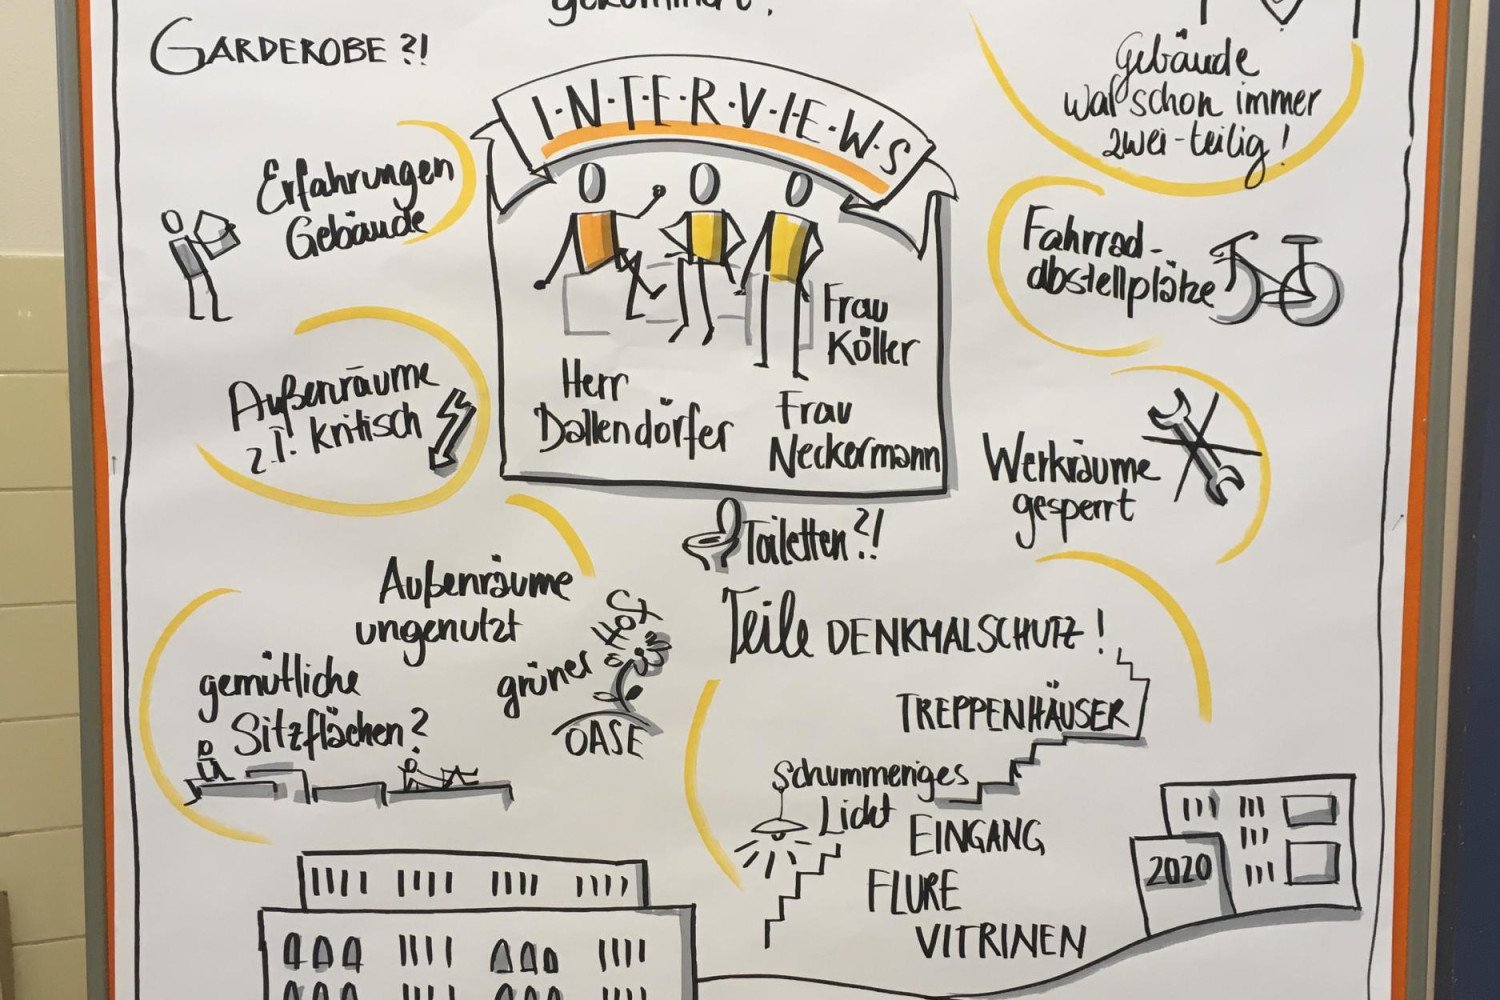 gekommen?
GARDEROBE ?!
I·N·T·E·R·V·I·E·W·S
Gebäude
war schon immer
zwei-teilig!
Erfahrungen
Gebäude
Fahrrad-
abstellplätze
Frau
Köller
Herr
Dallendörfer
Frau
Neckermann
Außenräume
z.T. kritisch
Werkräume
gesperrt
Toiletten?!
Außenräume
ungenutzt
grüner HOF
OASE
gemütliche
Sitzflächen?
Teile DENKMALSCHUTZ!
TREPPENHÄUSER
Schummeriges
Licht
EINGANG
FLURE
VITRINEN
2020